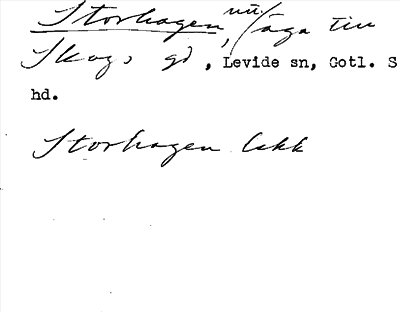 Storhagen, äga till
Skogs gd, Levide sn, Gotl. S
hd.
Storhagen